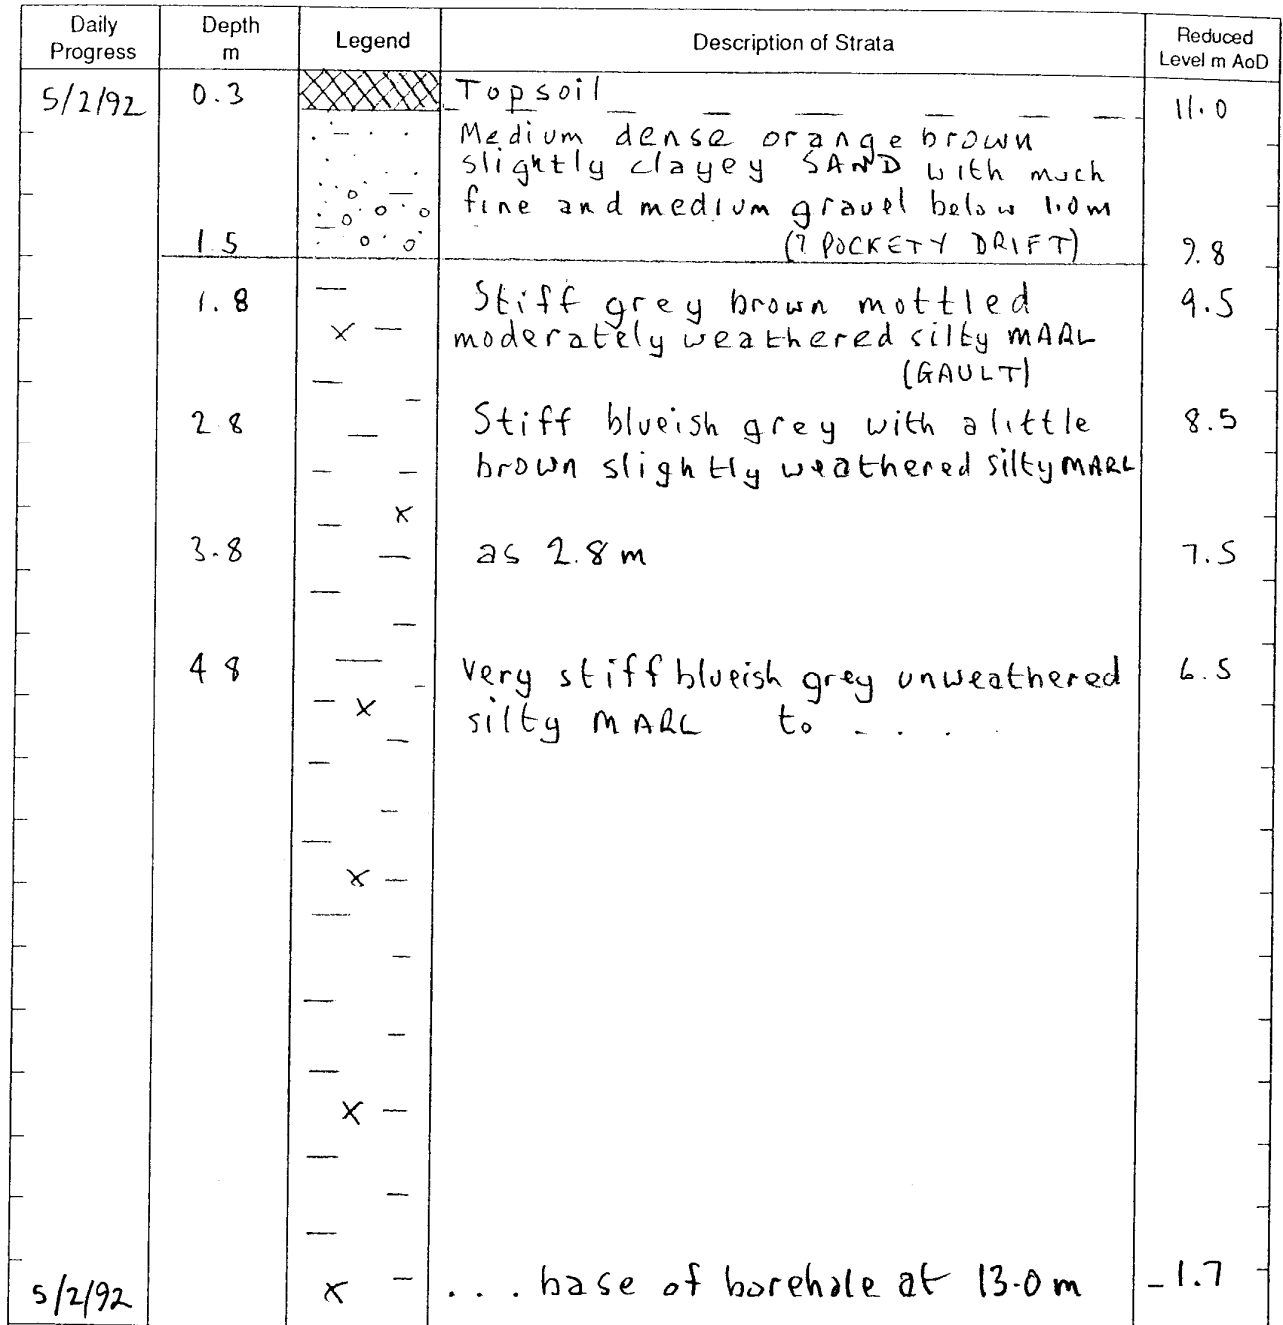 Daily Progress Depth m Legend Description of Strata Reduced Level m AoD
5/2/92 0.3 Topsoil 11.0
Medium dense orange brown
slightly clayey SAND with much
fine and medium gravel below 1.0m
1.5 (? POCKETY DRIFT) 9.8
1.8 Stiff grey brown mottled 9.5
moderately weathered silty MARL
(GAULT)
2.8 Stiff blueish grey with a little 8.5
brown slightly weathered silty MARL
3.8 as 2.8 m 7.5
4 8 Very stiff blueish grey unweathered 6.5
silty MARL to - . . .
5/2/92 . . . base of borehole at 13.0 m -1.7